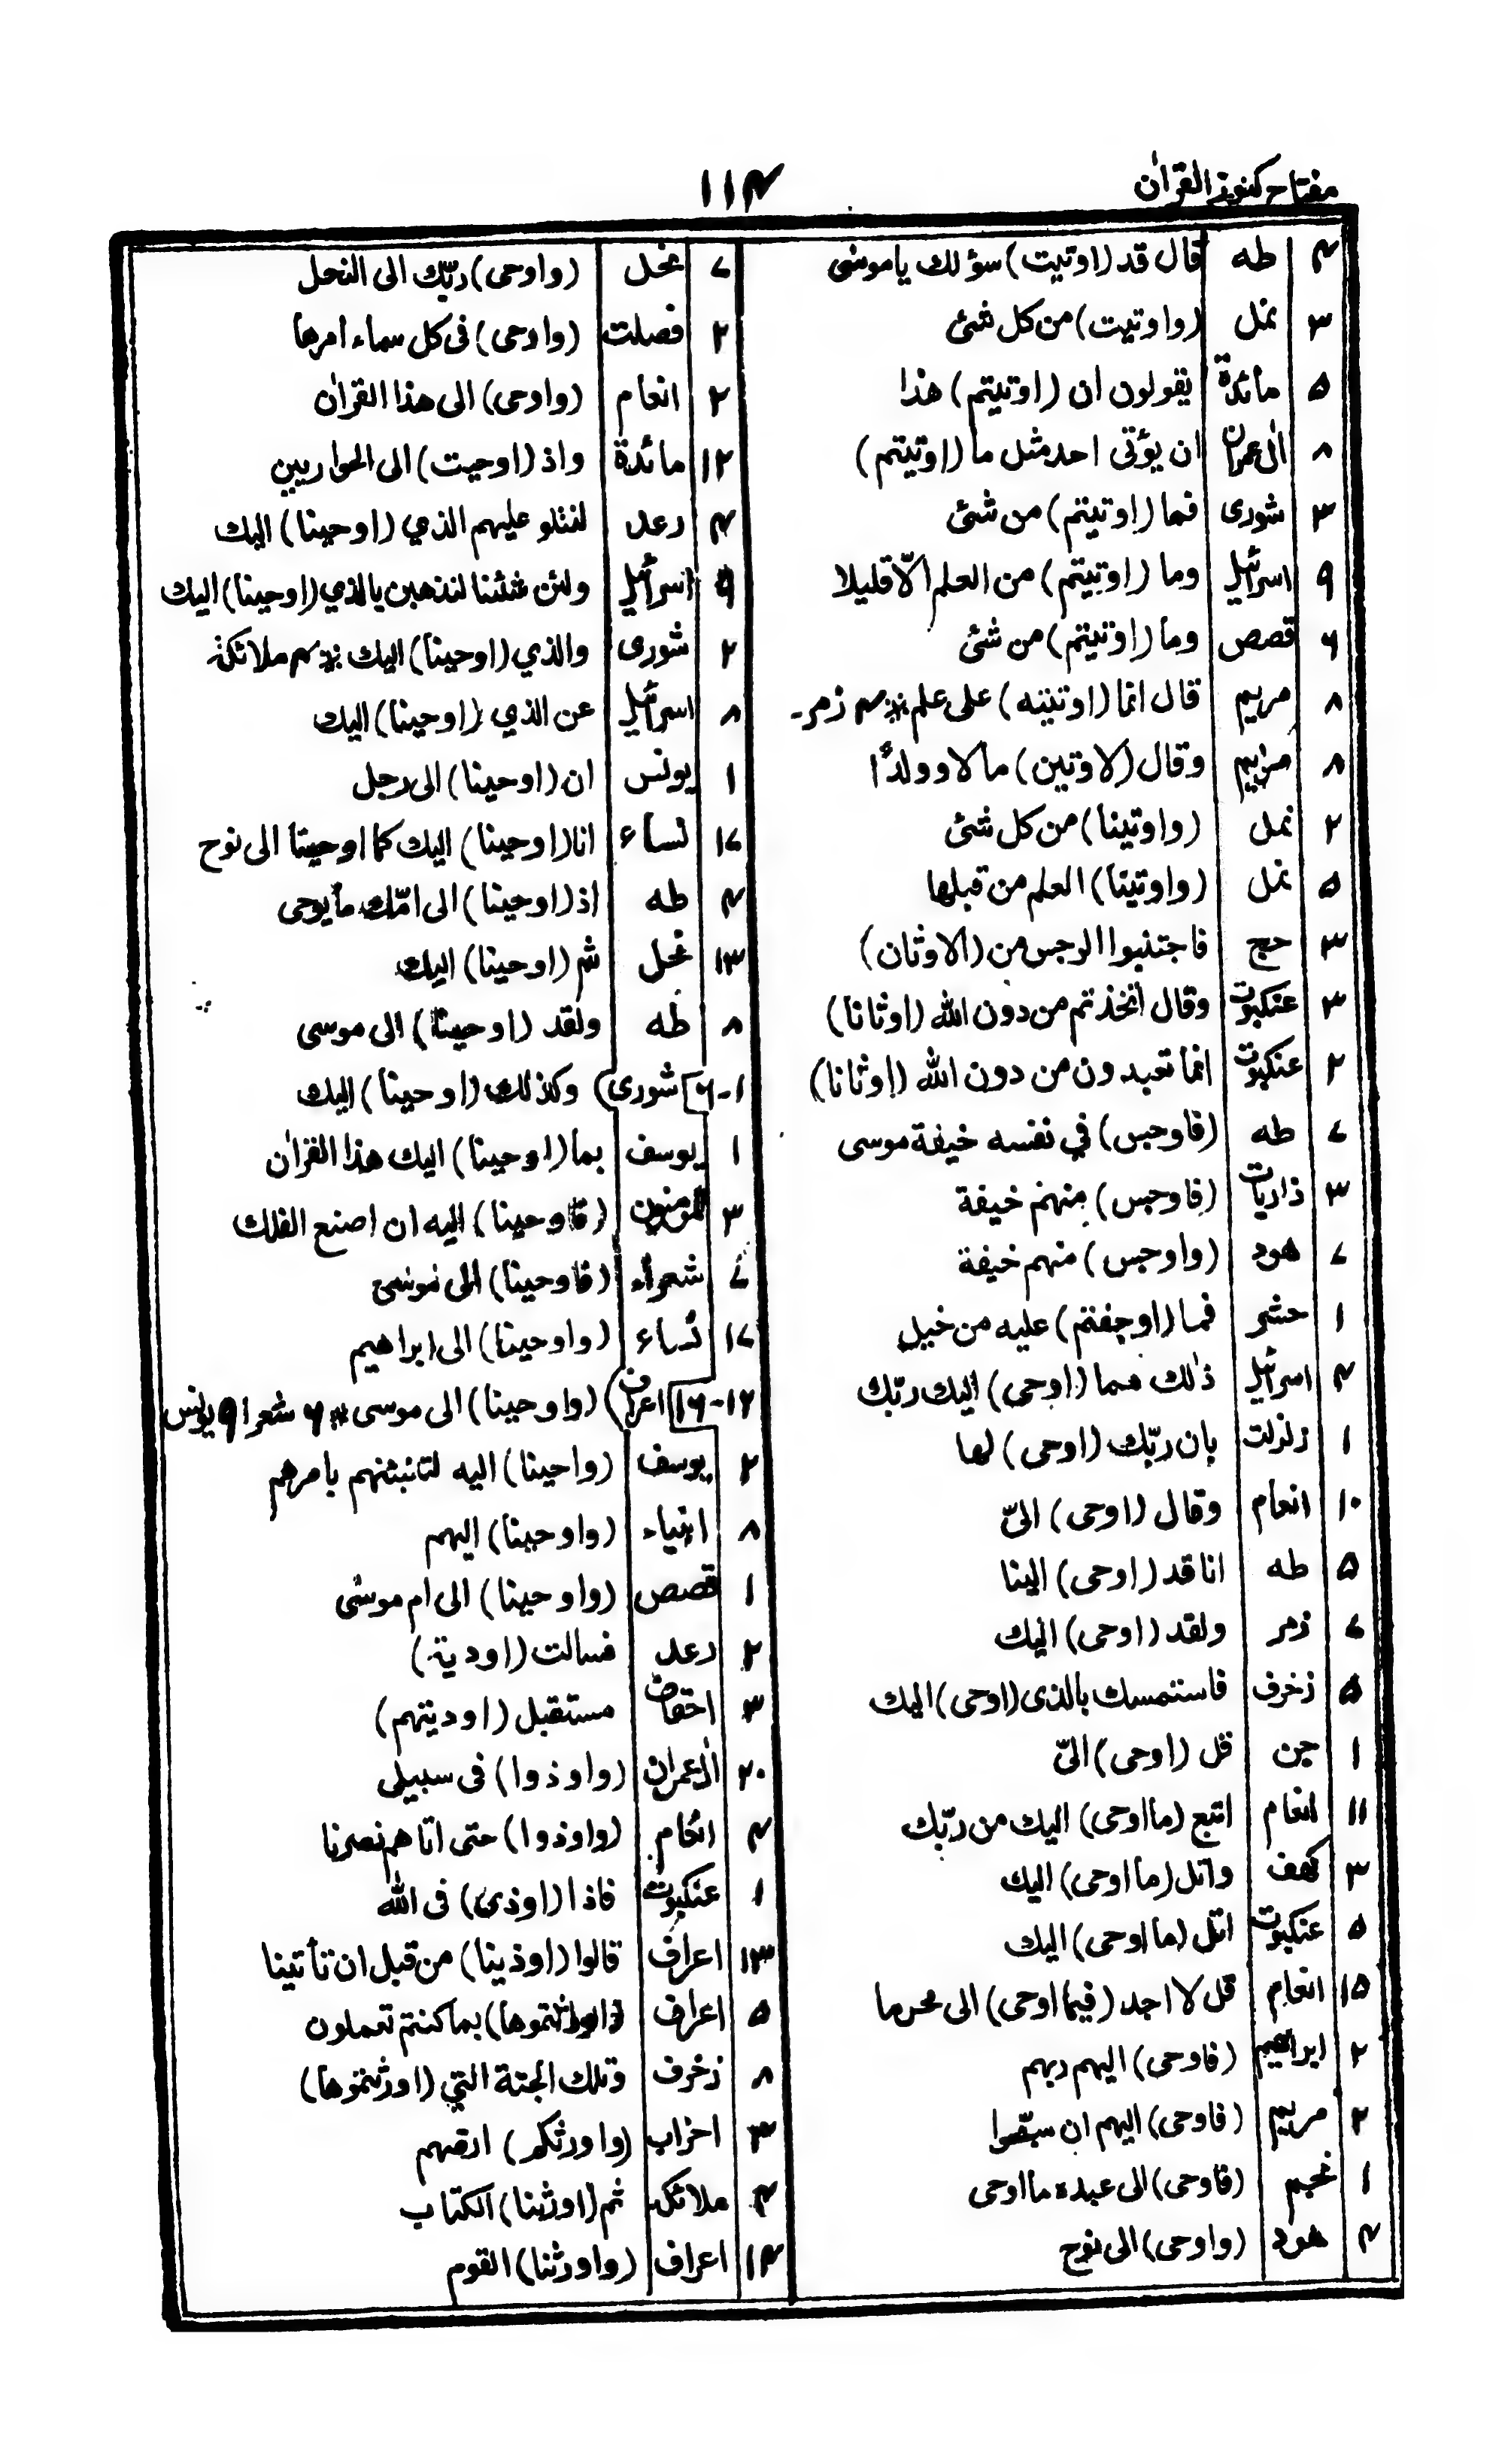 مفتاح کنوز القراٰن
۱۱۴
۴ طه قال قد (اوتیت) سؤلك یا موسٰی
۳ نمل (واوتیت) من کل شئ
۵ مائدة یقولون ان (اوتیتم) هذا
۸ اٰل عمران ان یؤتی احد مثل ما (اوتیتم)
۳ شوری فما (اوتیتم) من شئ
۹ اسرائیل وما (اوتیتم) من العلم الّا قلیلا
۶ قصص وما (اوتیتم) من شئ
۸ مریم قال انما (اوتیته) علی علم ؞ ۴ زمر۔
۸ مریم وقال (لاوتین) مالا وولدًا
۲ نمل (واوتینا) من کل شئ
۵ نمل (واوتینا) العلم من قبلها
۳ حج فاجتنبوا الرجس من (الاوثان)
۳ عنکبوت وقال اتخذتم من دون الله (اوثانا)
۲ عنکبوت انما تعبدون من دون الله (اوثانا)
۷ طه (فاوجس) فی نفسه خیفة موسی
۳ ذاریات (فاوجس) منهم خیفة
۷ هود (واوجس) منهم خیفة
۱ حشر فما (اوجفتم) علیه من خیل
۴ اسرائیل ذٰلك مما (اوحی) الیك ربّك
۱ زلزلت بان ربّك (اوحی) لها
۱۰ انعام وقال (اوحی) الیّ
۵ طه انا قد (اوحی) الینا
۷ زمر ولقد (اوحی) الیك
۵ زخرف فاستمسك بالذی (اوحی) الیك
۱ جن قل (اوحی) الیّ
۱۱ انعام اتبع (ما اوحی) الیك من ربّك
۳ کهف واتل (ما اوحی) الیك
۵ عنکبوت اتل (ما اوحی) الیك
۱۵ انعام قل لا اجد (فیما اوحی) الی محرما
۲ ابراهیم (فاوحی) الیهم ربهم
۲ مریم (فاوحی) الیهم ان سبّحوا
۱ نجم (فاوحی) الی عبده ما اوحی
۴ هود (واوحی) الی نوح
۷ نحل (واوحی) ربّك الی النحل
۲ فصلت (واوحی) فی کل سماء امرها
۲ انعام (واوحی) الی هذا القراٰن
۱۲ مائدة واذ (اوحیت) الی الحواریین
۴ رعد لتتلو علیهم الذی (اوحینا) الیك
۹ اسرائیل ولئن شئنا لنذهبن بالذی (اوحینا) الیك
۲ شوری والذی (اوحینا) الیك ؞ ۴ ملائکة
۸ اسرائیل عن الذی (اوحینا) الیك
۱ یونس ان (اوحینا) الی رجل
۱۷ نساء انا (اوحینا) الیك کما اوحینا الی نوح
۴ طه اذ (اوحینا) الی امّك ما یوحی
۱۳ نحل ثم (اوحینا) الیك
۸ طه ولقد (اوحینا) الی موسی
۱-۶ شوری) وکذلك (اوحینا) الیك
۱ یوسف بما (اوحینا) الیك هذا القراٰن
۳ المؤمنون (فاوحینا) الیه ان اصنع الفلك
۷ شعراء (فاوحینا) الی موسی
۱۷ نساء (واوحینا) الی ابراهیم
۱۲-۱۶ اعراف) (واوحینا) الی موسی ؞ ۶ شعرا ۹ یونس
۲ یوسف (واحینا) الیه لتنبئنهم بامرهم
۸ انبیاء (واوحینا) الیهم
۱ قصص (واوحینا) الی ام موسٰی
۲ رعد فسالت (اودیة)
۳ احقاف مستقبل (اودیتهم)
۲۰ اٰل عمران (واوذوا) فی سبیلی
۴ انعام (واوذوا) حتی اتاهم نصرنا
۱ عنکبوت فاذا (اوذی) فی الله
۱۳ اعراف قالوا (اوذینا) من قبل ان تأتینا
۵ اعراف بما کنتم تعملون
۸ زخرف وتلك الجنة التی (اورثتموها)
۳ احزاب (واورثکم) ارضهم
۴ ملائکه ثم (اورثنا) الکتاب
۱۴ اعراف (واورثنا) القوم